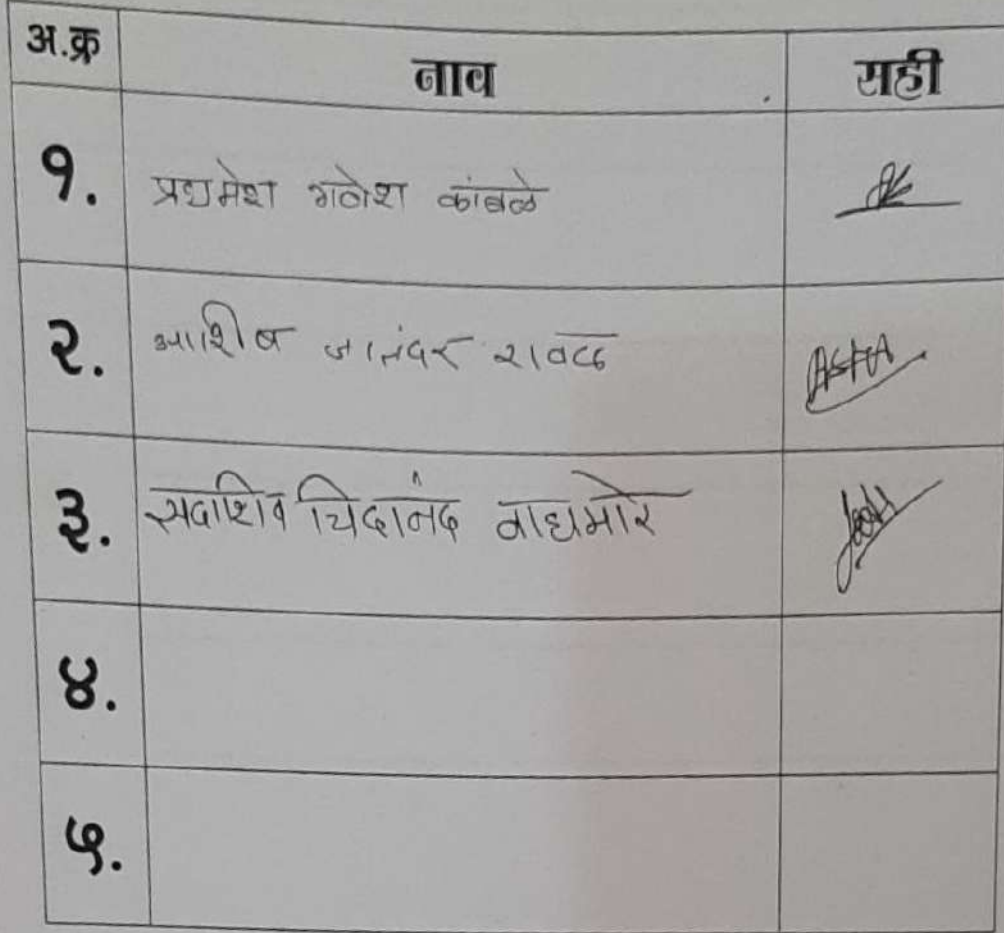 अ.क्र नाव सही
१. प्रथमेश गणेश कांबळे
२. आशिष
३. सदाशिव चिदानंद वाघमोरे
४.
५.